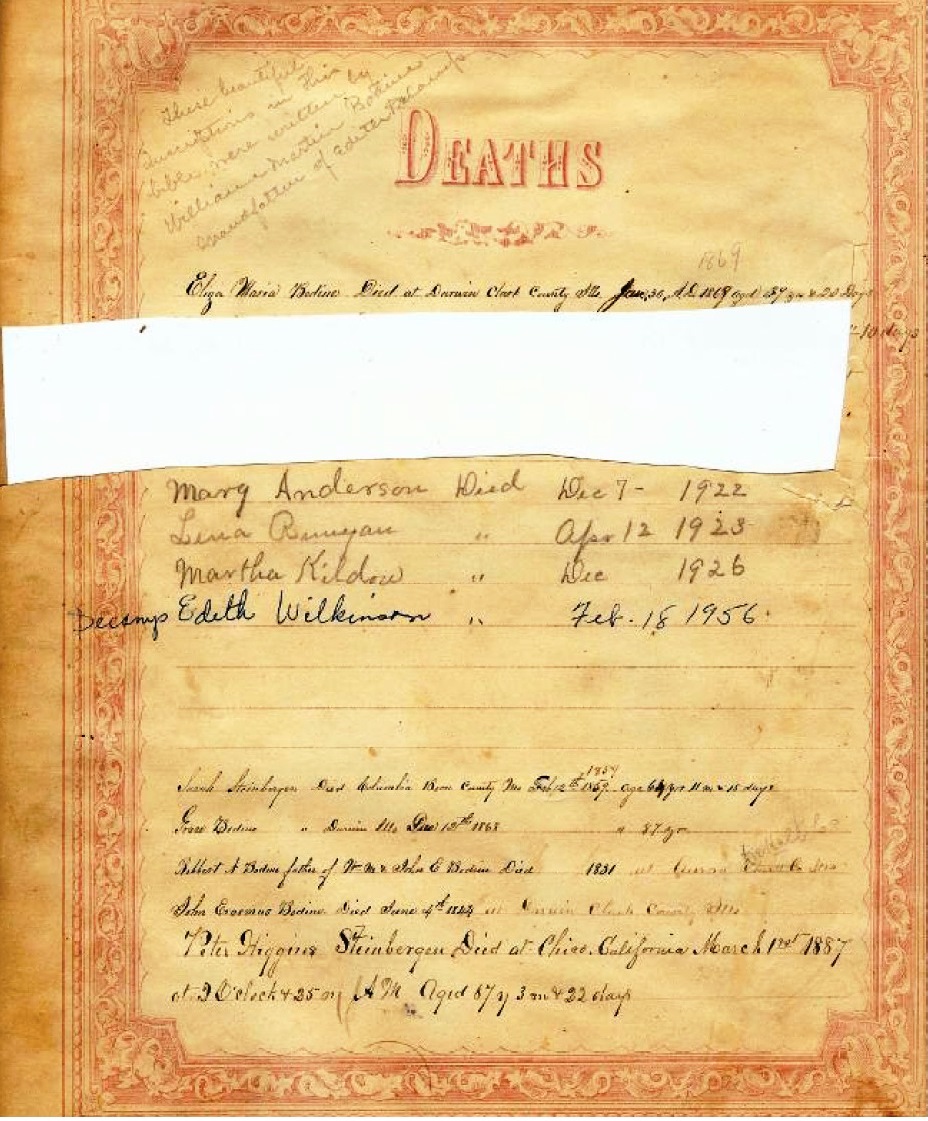 These beautiful
inscriptions in this
bible were written by
William Martin Bodine
Grandfather of Edith
DEATHS
1869
Eliza Maria Bodine Died at Darwin Clark County Ills Jan 30, A.D. 1869 aged 39 yrs & 20 Days
" 10 days
Mary Anderson Died Dec 7 - 1922
Lena Runyan " Apr 12 1923
Martha Kildow " Dec 1926
Decamp Edith Wilkinson " Feb. 18 1956.
1859
Sarah Steinbergen Died Columbia Boon County Mo Feb 12th 1859. age 64 yrs 11 m & 15 days
Bodine " Darwin Ills Dec 12th 1868 " 87 yrs
DeKalb Co
Robbert A Bodine father of Wm M & John E Bodine Died 1831 at Co Ills
John Erasmus Bodine Died June 4th 1844 at Darwin Clark County Ills
Peter Higgins Steinbergen Died at Chico. California March 1rst 1887
at 2 O'clock & 25 m A M Aged 87 y 3 m & 22 days